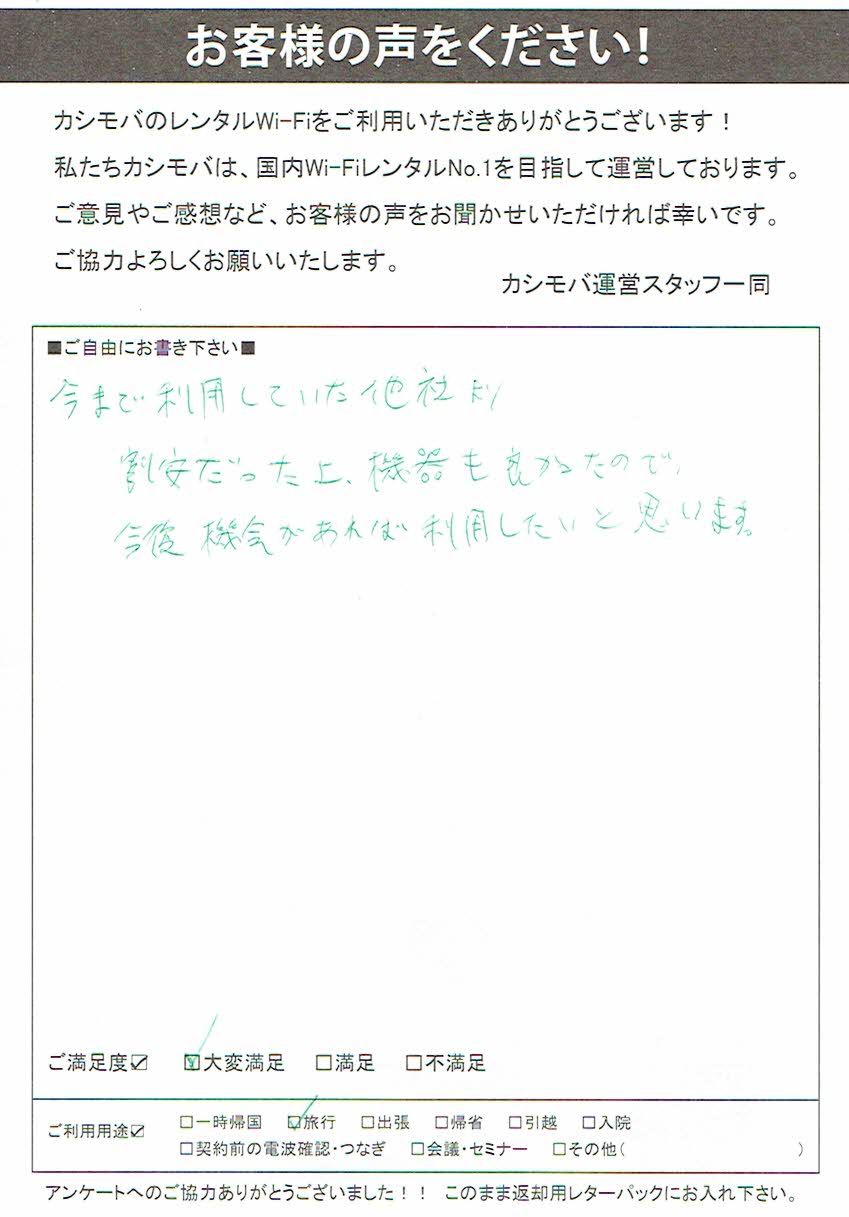 お客様の声をください!
カシモバのレンタルWi-Fiをご利用いただきありがとうございます!
私たちカシモバは、国内Wi-FiレンタルNo.1を目指して運営しております。
ご意見やご感想など、お客様の声をお聞かせいただければ幸いです。
ご協力よろしくお願いいたします。
カシモバ運営スタッフ一同
■ご自由にお書き下さい■
今まで利用していた他社より
割安だった上、機器も良かったので、
今後機会があれば利用したいと思います。
ご満足度☑ ☑大変満足 □満足 □不満足
ご利用用途☑ □一時帰国 ☑旅行 □出張 □帰省 □引越 □入院
□契約前の電波確認・つなぎ □会議・セミナー □その他( )
アンケートへのご協力ありがとうございました!! このまま返却用レターパックにお入れ下さい。